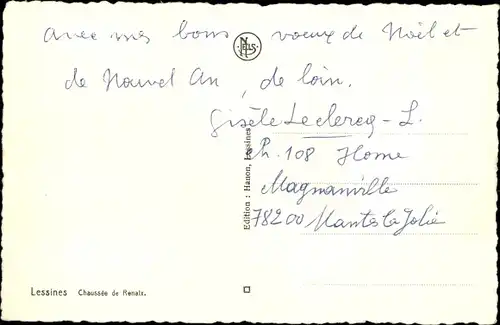 avec mes bons voeux de Noël et
NELS
de Nouvel An, de loin.
Gisèle Leclercq - L.
Ch. 108 Home
Magnanville
78200 Mantes la Jolie
Edition : Hanon, Lessines
Lessines Chaussée de Renaix.